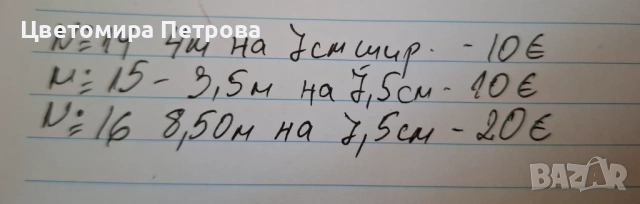 Цветомира Петрова
N=14 4м на 7см шир. - 10€
N=15 - 3,5м на 7,5см - 10€
N=16 8,50м на 7,5см - 20€
BAZAR